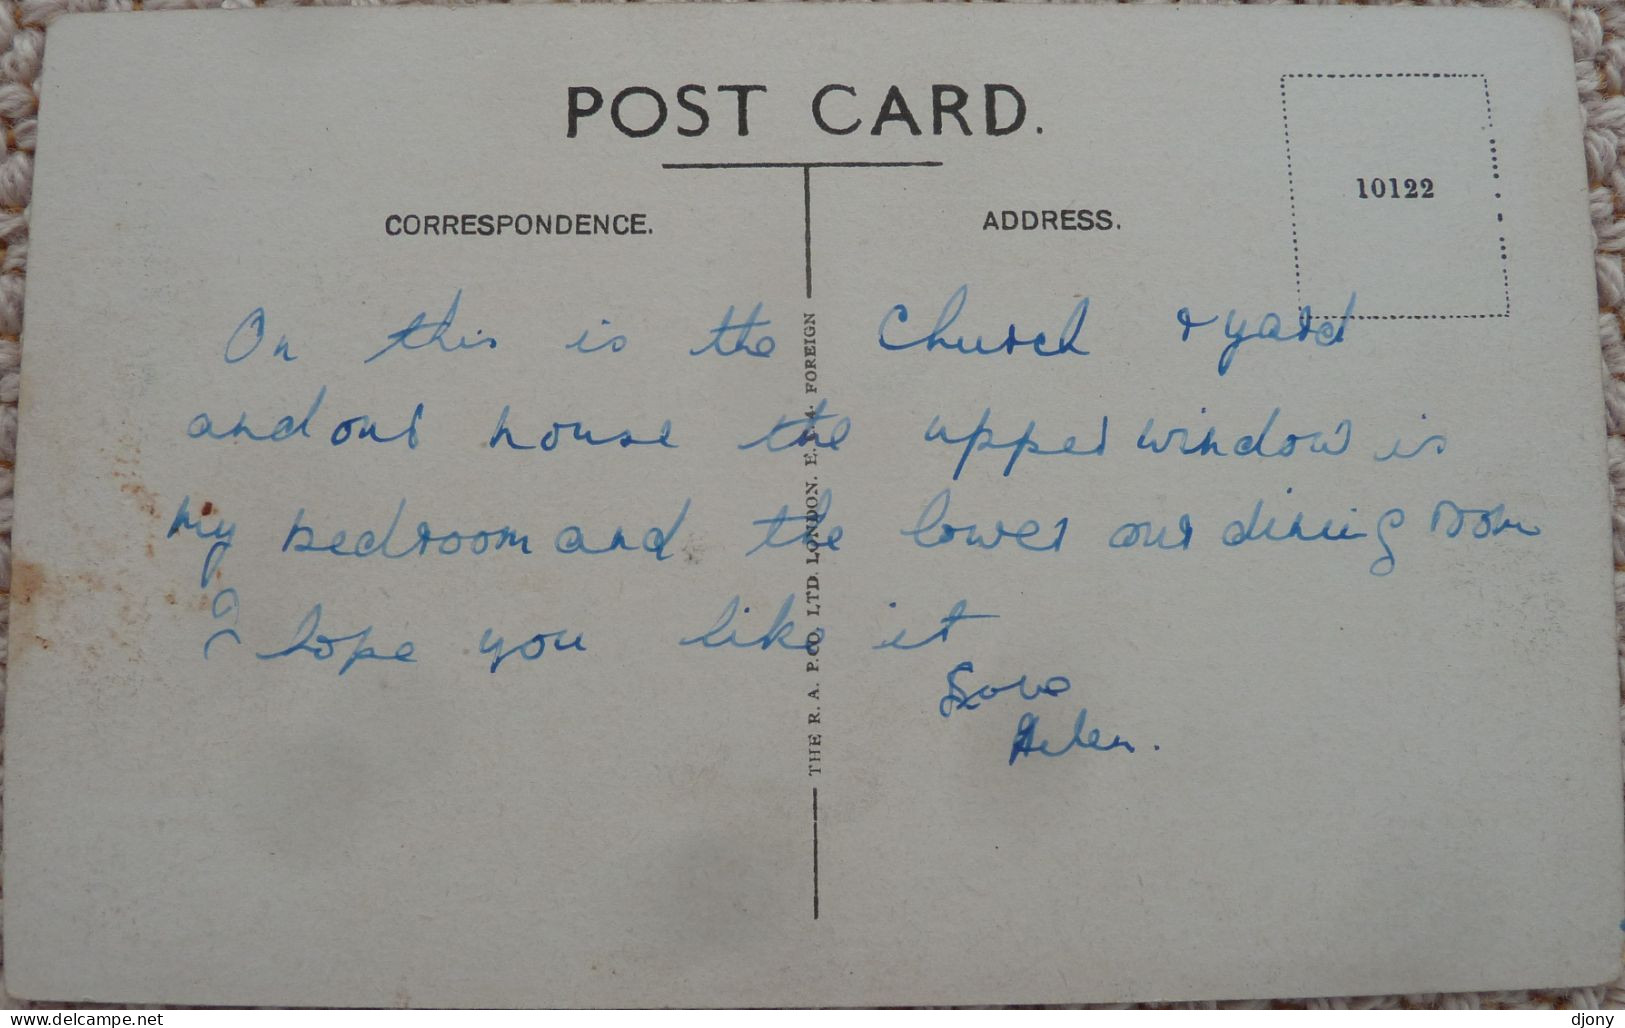 POST CARD.
CORRESPONDENCE.
ADDRESS.
10122
On this is the Church & yard
and our house the upper window is
my bedroom and the lower our dining room
I hope you like it
Love
Helen.
THE R. A. P. CO. LTD. LONDON. E.C.4. FOREIGN
delcampe.net
djony